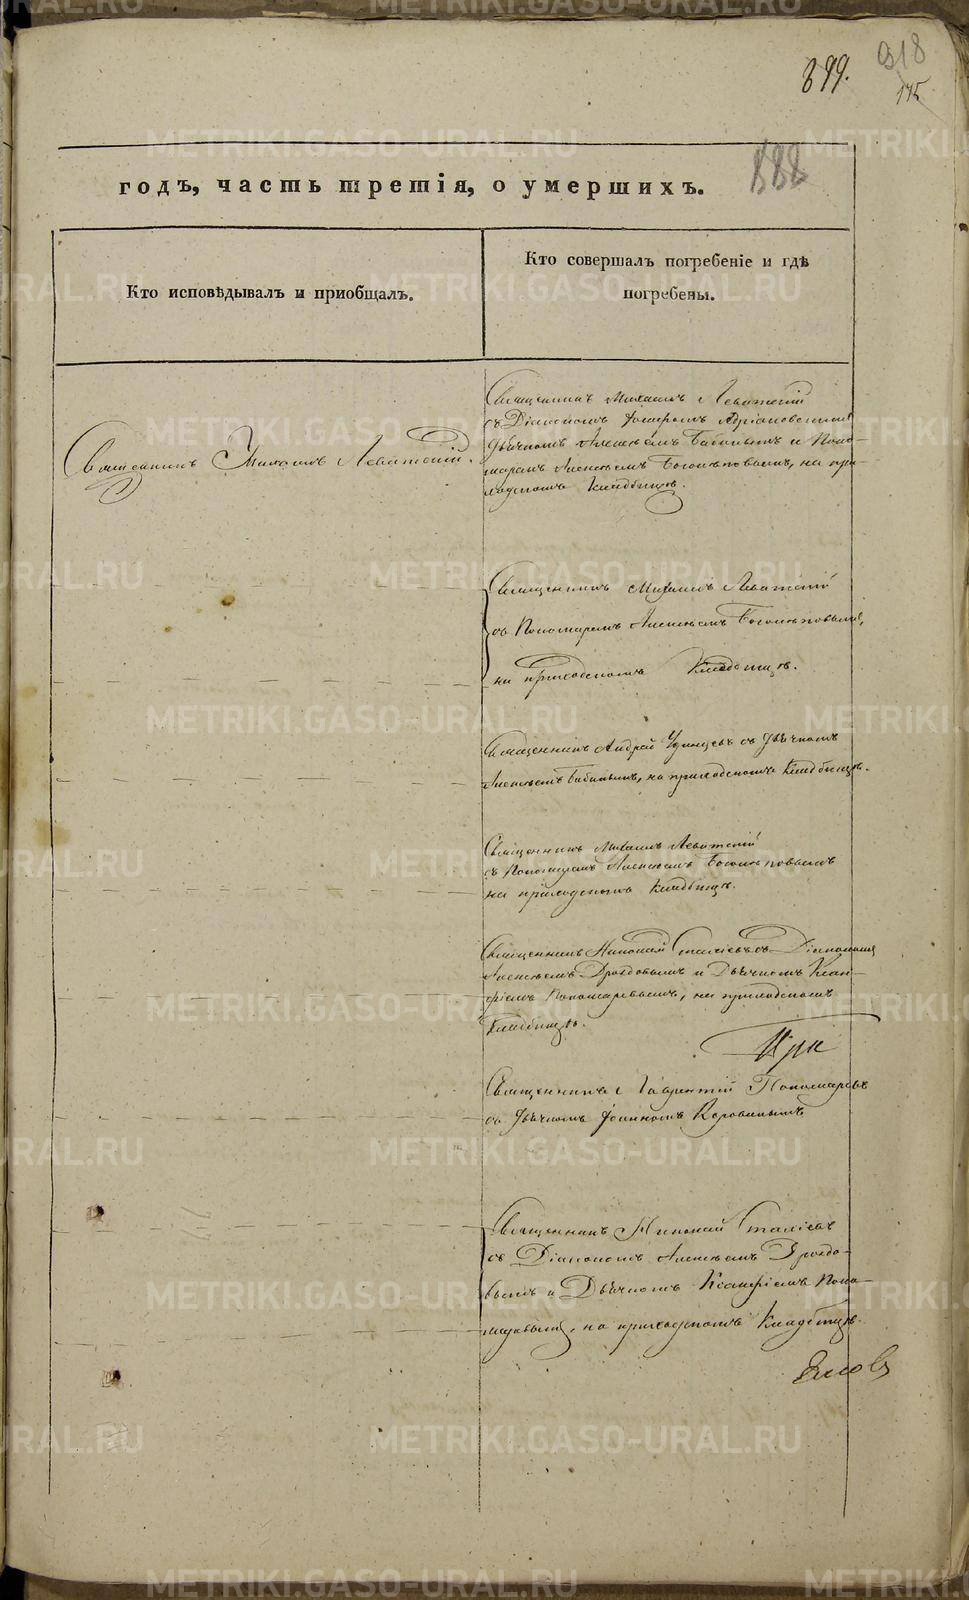 899.
918
115
888
годъ, часть третія, о умершихъ.
Кто исповѣдывалъ и пріобщалъ.
Кто совершалъ погребеніе и гдѣ
погребены.
Священникъ Михаилъ Левитскій.
Священникъ Михаилъ Левитскій
съ Діакономъ Іосифомъ Адріановскимъ
Дьячкомъ Алексѣемъ Бабинымъ и Поно-
маремъ Алексѣемъ Боголѣповымъ, на при-
ходскомъ кладбищѣ.
Священникъ Михаилъ Левитскій
съ Пономаремъ Алексѣемъ Боголѣповымъ,
на приходскомъ Кладбищѣ.
Священникъ Андрей Удинцевъ съ Дьячкомъ
Алексѣемъ Бабинымъ, на приходскомъ Кладбищѣ.
Священникъ Михаилъ Левитскій
съ Пономаремъ Алексѣемъ Боголѣповымъ
на приходскомъ Кладбищѣ.
Священникъ Николай Стахіевъ съ Діакономъ
Алексѣемъ Дроздовымъ и Дьячкомъ Ксан-
фіемъ Пономаревымъ, на приходскомъ
Кладбищѣ.
При
Священникъ Лаврентій Пономаревъ
съ Дьячкомъ Іоанномъ Коровинымъ
Священникъ Николай Стахіевъ
съ Діакономъ Алексѣемъ Дроздо-
вымъ и Дьячкомъ Ксанфіемъ Поно-
маревымъ, на приходскомъ Кладбищѣ.
METRIKI.GASO-URAL.RU